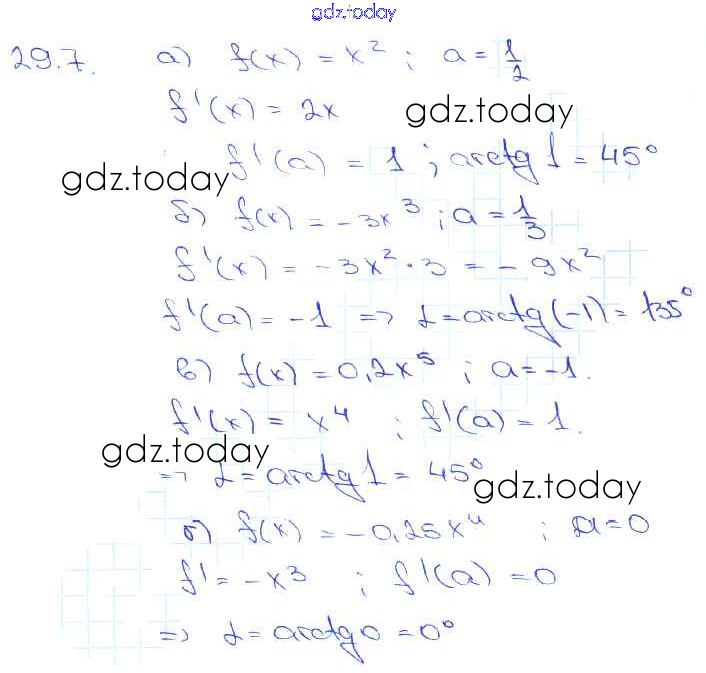 gdz.today
29.7. а) f(x) = x² ; a = 1/2
f'(x) = 2x
gdz.today
f'(a) = 1 ; arctg 1 = 45°
gdz.today
б) f(x) = -3x³ ; a = 1/3
f'(x) = -3x² · 3 = -9x²
f'(a) = -1 => α = arctg(-1) = 135°
в) f(x) = 0,2x⁵ ; a = -1.
f'(x) = x⁴ ; f'(a) = 1.
gdz.today
=> α = arctg 1 = 45°
gdz.today
г) f(x) = -0,25x⁴ ; a = 0
f' = -x³ ; f'(a) = 0
=> α = arctg 0 = 0°